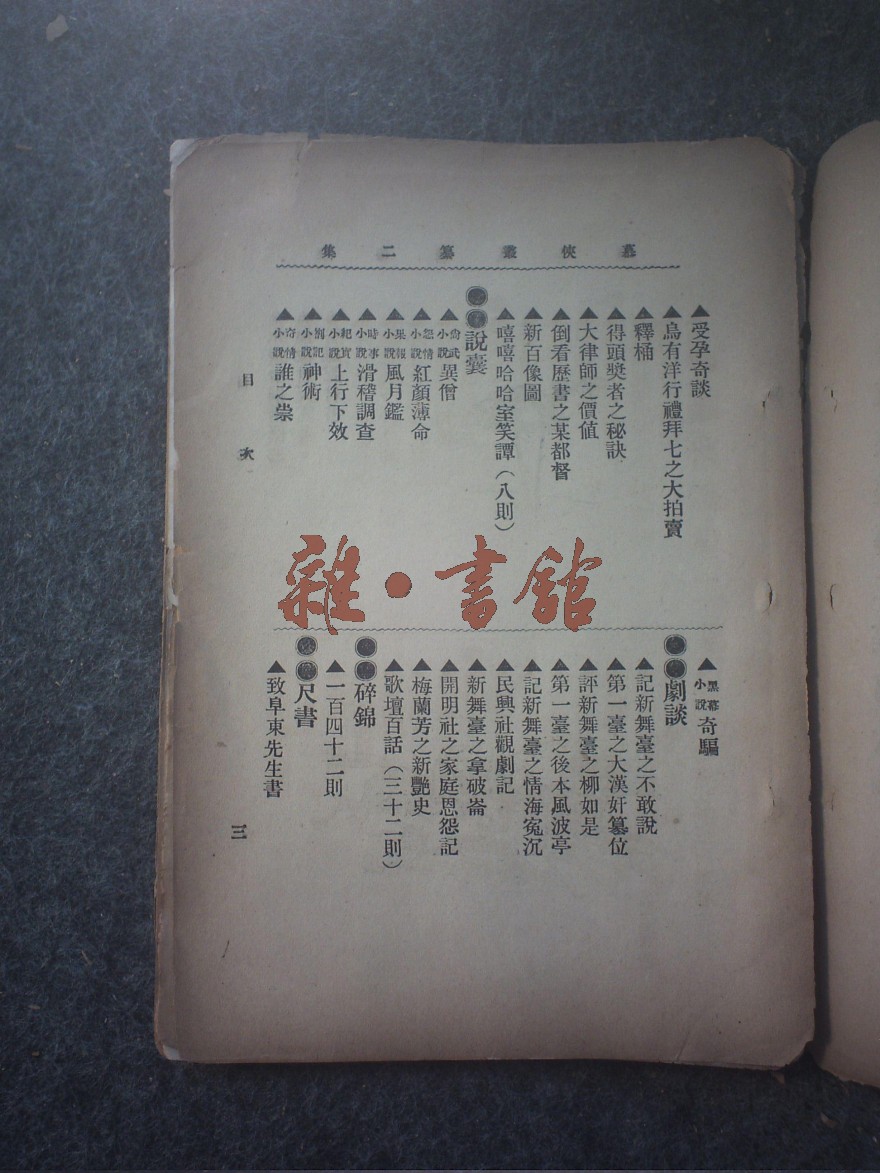 慕俠叢纂二集
▲受孕奇談
▲烏有洋行禮拜七之大拍賣
▲釋桶
▲得頭獎者之秘訣
▲大律師之價值
▲倒看歷書之某都督
▲新百像圖
▲嘻嘻哈哈室笑譚(八則)
說囊
▲尙武小說異僧
▲怨情小說紅顏薄命
▲果報小說風月鑑
▲時事小說滑稽調查
▲紀實小說上行下效
▲劄記小說神術
▲奇情小說誰之祟
▲黑幕小說奇騙
劇談
▲記新舞臺之不敢說
▲第一臺之大漢奸篡位
▲評新舞臺之柳如是
▲第一臺之後本風波亭
▲記新舞臺之情海冤沉
▲民興社觀劇記
▲新舞臺之拿破崙
▲開明社之家庭恩怨記
▲梅蘭芳之新艷史
▲歌壇百話(三十二則)
碎錦
▲一百四十二則
尺書
▲致阜東先生書
目次
三
雜·書館